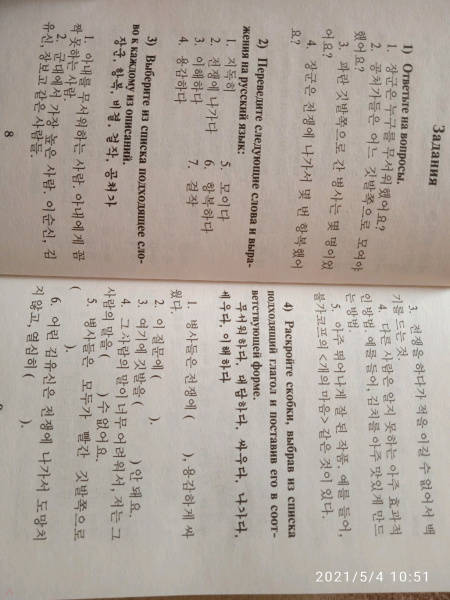 Задания
1) Ответьте на вопросы.
1. 장군은 누구를 무서워했어요?
2. 공처가들은 어느 깃발쪽으로 모여야
했어요?
3. 파란 깃발쪽으로 간 병사는 몇 명이었
어요?
4. 장군은 전쟁에 나가서 몇 번 항복했어
요?
2) Переведите следующие слова и выра-
жения на русский язык:
1. 지독히
2. 전쟁에 나가다
3. 이해하다
4. 용감하다
5. 모이다
6. 항복하다
7. 걸작
3) Выберите из списка подходящее сло-
во к каждому из описаний.
장군, 항복, 비결, 걸작, 공처가
1. 아내를 무서워하는 사람. 아내에게 꼼
짝 못하는 사람.
2. 군대에서 가장 높은 사람. 이순신, 김
유신, 장보고 같은 사람들.
8
3. 전쟁을 하다가 적을 이길 수 없어서 백
기를 드는 것.
4. 다른 사람은 알지 못하는 아주 효과적
인 방법. 예를 들어, 김치를 아주 맛있게 만드
는 방법.
5. 아주 뛰어나게 잘 된 작품. 예를 들어,
불가코프의 <개의 마음> 같은 것이 있다.
4) Раскройте скобки, выбрав из списка
подходящий глагол и поставив его в соот-
ветствующей форме.
무서워하다, 대답하다, 싸우다, 나가다,
세우다, 이해하다
1. 병사들은 전쟁에 ( ), 용감하게 싸
웠다.
2. 이 질문에 ( ).
3. 여기에 깃발을 ( ) 안 돼요.
4. 그 사람의 말이 너무 어려워서, 저는 그
사람의 말을 ( ) 수 없어요.
5. 병사들은 모두가 빨간 깃발쪽으로
( ).
6. 어린 김유신은 전쟁에 나가서 도망치
지않고, 열심히 ( ).
2021/5/4 10:51